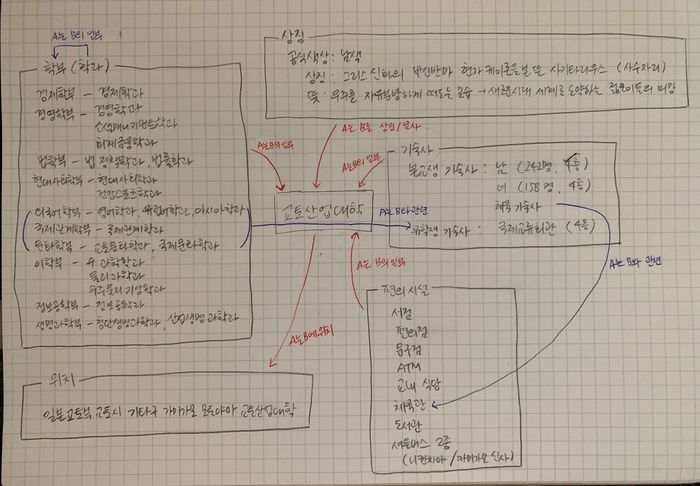 A는 B의 일부
학부 (학과)
경제학부 - 경제학과
경영학부 - 경영학과
소셜매니지먼트학과
회계금융학과
법학부 - 법정책학과, 법률학과
현대사회학부 - 현대사회학과
건강스포츠학과
외국어학부 - 영어학과, 유럽어학과, 아시아학과
국제관계학부 - 국제관계학과
문화학부 - 교토문화학과, 국제문화학과
이학부 - 수 과학학과
물리과학과
우주물리기상학과
정보공학부 - 정보공학과
생명과학부 - 첨단생명과학과, 산업생명과학과
상징
공식색상: 남색
상징: 그리스 신화의 반신반마 현자 케이론을 본 딴 사기타리우스 (사수자리)
뜻: 우주를 자유분방하게 떠도는 모습 → 새로운 시대, 세계로 도약하는 젊은이들의 희망
A는 B를 상징/묘사
A는 B의 일부
A는 B의 일부
교토산업대학
A는 B와 관련
기숙사
불교생 기숙사: 남 (242명, 4층)
녀 (158명, 4층)
체육 기숙사
유학생 기숙사: 국제교류회관 (4층)
A는 B와 관련
A는 B의 일부
A는 B에 위치
편의시설
서점
편의점
문구점
ATM
교내 식당
체육관
도서관
셔틀버스 2종
(니켄자야/카미가모 신사)
위치
일본 교토부 교토시 기타구 가미가모 모토야마 교토산업대학